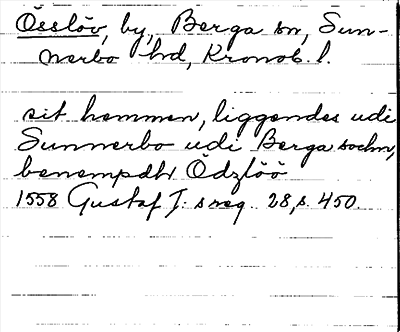 Össlöv, by, Berga sn, Sun-
nerbo hd, Kronob. l.
sit hemmen, liggendes udi
Sunnerbo udi Berga sochn,
benempdt Ödzlöö
1558 Gustaf I:s reg. 28, s. 450.